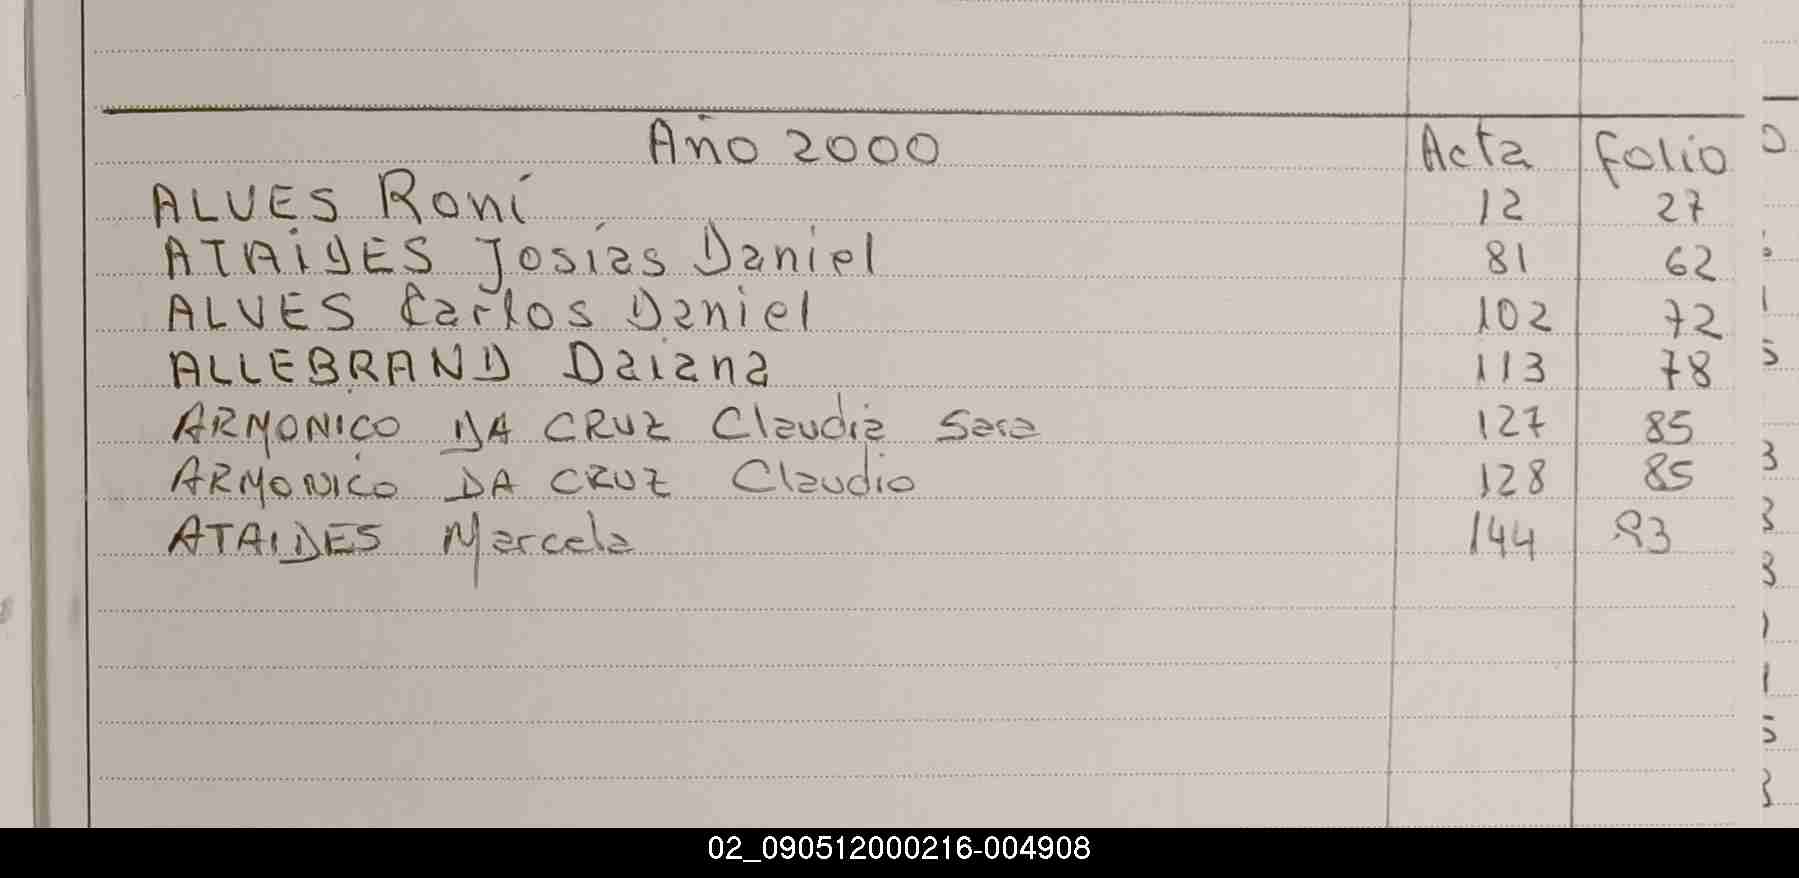 Año 2000 Acta folio
ALVES Roni 12 27
ATAIDES Josías Daniel 81 62
ALVES Carlos Daniel 102 72
ALLEBRAND Daiana 113 78
ARMONICO DA CRUZ Claudia Sara 127 85
ARMONICO DA CRUZ Claudio 128 85
ATAIDES Marcela 144 93
02_090512000216-004908